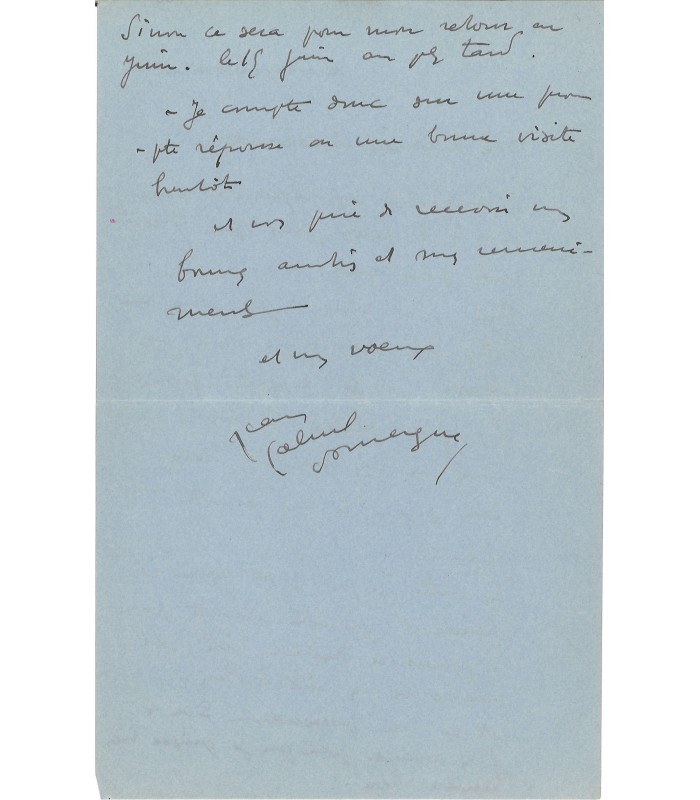 Sinon ce sera pour mon retour en
juin. le 15 juin au plus tard.
- Je compte donc sur une prom
- pte réponse ou une bonne visite
bientôt
et vous prie de recevoir mes
bonnes amitiés et mes remerci-
ments
et mes voeux
Jean Gabriel Domergue